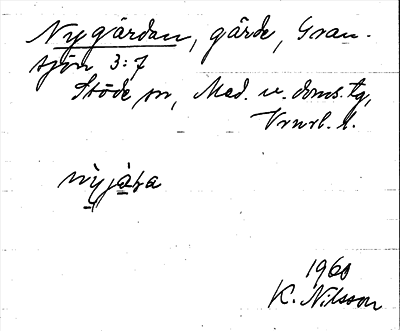 Nygårdan, gärde, Gran-
sjön 3:7
Stöde sn, Med. v. doms. tg,
Vnrl. l.
nỳjáṣa
1960
K. Nilsson